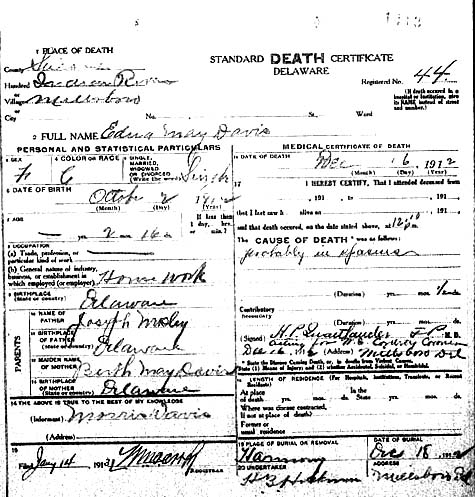 1 PLACE OF DEATH
STANDARD DEATH CERTIFICATE
DELAWARE
County
Hundred Indian River
or
Village Millsboro
or
City No. St. Ward
Registered No. 44
(If death occurred in a hospital or institution, give its NAME instead of street and number.)
2 FULL NAME Edna May Davis
PERSONAL AND STATISTICAL PARTICULARS
SEX
F
4 COLOR OR RACE
C
5 SINGLE, MARRIED, WIDOWED OR DIVORCED (Write the word) Single
6 DATE OF BIRTH
October 2 1912
(Month) (Day) (Year)
7 AGE
— yrs. 2 mos. 16 ds.
If less than 1 day, hrs. or min.?
8 OCCUPATION
(a) Trade, profession, or particular kind of work
(b) General nature of industry, business, or establishment in which employed (or employer) House work
9 BIRTHPLACE
(State or country) Delaware
PARENTS
10 NAME OF FATHER Joseph Mosley
11 BIRTHPLACE OF FATHER
(State or country) Delaware
12 MAIDEN NAME OF MOTHER Berth May Davis
13 BIRTHPLACE OF MOTHER
(State or country) Delaware
14 THE ABOVE IS TRUE TO THE BEST OF MY KNOWLEDGE
(Informant) Morris Davis
(Address)
15
Filed Jany 14 1913
REGISTRAR
MEDICAL CERTIFICATE OF DEATH
16 DATE OF DEATH
Dec 16 1912
(Month) (Day) (Year)
17 I HEREBY CERTIFY, That I attended deceased from
, 191 , to , 191 ,
that I last saw h alive on , 191 ,
and that death occurred, on the date stated above, at 12
The CAUSE OF DEATH was as follows:
probably in spasms
(Duration) yrs. mos. ds.
Contributory
Secondary
(Duration) yrs. mos. ds.
(Signed) M.D.
acting for Coroner
Dec 16, 1912 (Address) Millsboro Del
State the Disease Causing Death, or, in deaths from Violent Causes, state (1) Means of Injury; and (2) whether Accidental, Suicidal, or Homicidal.
18 LENGTH OF RESIDENCE (For Hospitals, Institutions, Transients, or Recent Residents)
At place of death yrs. mos. ds. In the State yrs. mos. ds.
Where was disease contracted, if not at place of death?
Former or usual residence
19 PLACE OF BURIAL OR REMOVAL
Harmony
DATE OF BURIAL
Dec 18, 1912
20 UNDERTAKER
ADDRESS
Millsboro Del